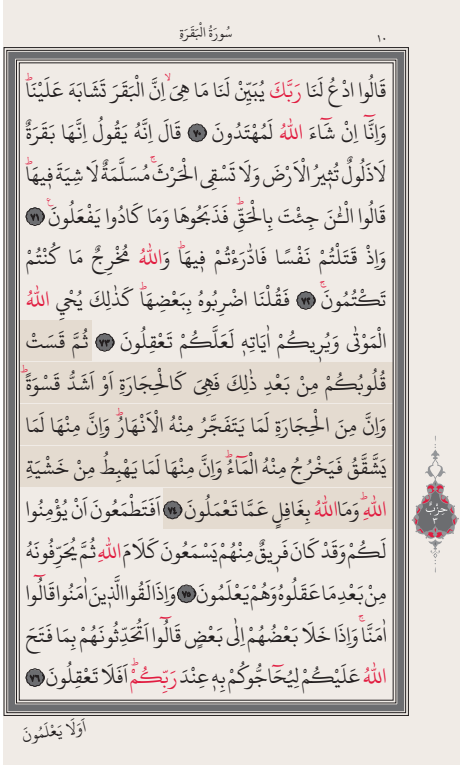 سُورَةُ الْبَقَرَةِ
١٠
قَالُوا ادْعُ لَنَا رَبَّكَ يُبَيِّنْ لَنَا مَا هِيَۙ اِنَّ الْبَقَرَ تَشَابَهَ عَلَيْنَاۜ
وَاِنَّٓا اِنْ شَٓاءَ اللّٰهُ لَمُهْتَدُونَ ﴿٧٠﴾ قَالَ اِنَّهُ يَقُولُ اِنَّهَا بَقَرَةٌ
لَاذَلُولٌ تُثِيرُ الْاَرْضَ وَلَا تَسْقِي الْحَرْثَۚ مُسَلَّمَةٌ لَا شِيَةَ ف۪يهَاۜ
قَالُوا الْـٰٔنَ جِئْتَ بِالْحَقِّۜ فَذَبَحُوهَا وَمَا كَادُوا يَفْعَلُونَ۟ ﴿٧١﴾
وَاِذْ قَتَلْتُمْ نَفْسًا فَادّٰرَءْتُمْ ف۪يهَاۜ وَاللّٰهُ مُخْرِجٌ مَا كُنْتُمْ
تَكْتُمُونَۚ ﴿٧٢﴾ فَقُلْنَا اضْرِبُوهُ بِبَعْضِهَاۜ كَذٰلِكَ يُحْيِ اللّٰهُ
الْمَوْتٰى وَيُر۪يكُمْ اٰيَاتِه۪ لَعَلَّكُمْ تَعْقِلُونَ ﴿٧٣﴾ ثُمَّ قَسَتْ
قُلُوبُكُمْ مِنْ بَعْدِ ذٰلِكَ فَهِيَ كَالْحِجَارَةِ اَوْ اَشَدُّ قَسْوَةًۜ
وَاِنَّ مِنَ الْحِجَارَةِ لَمَا يَتَفَجَّرُ مِنْهُ الْاَنْهَارُۜ وَاِنَّ مِنْهَا لَمَا
يَشَّقَّقُ فَيَخْرُجُ مِنْهُ الْمَٓاءُۜ وَاِنَّ مِنْهَا لَمَا يَهْبِطُ مِنْ خَشْيَةِ
اللّٰهِۜ وَمَا اللّٰهُ بِغَافِلٍ عَمَّا تَعْمَلُونَ ﴿٧٤﴾ اَفَتَطْمَعُونَ اَنْ يُؤْمِنُوا
لَكُمْ وَقَدْ كَانَ فَر۪يقٌ مِنْهُمْ يَسْمَعُونَ كَلَامَ اللّٰهِ ثُمَّ يُحَرِّفُونَهُ
مِنْ بَعْدِ مَا عَقَلُوهُ وَهُمْ يَعْلَمُونَ ﴿٧٥﴾ وَاِذَا لَقُوا الَّذ۪ينَ اٰمَنُوا قَالُٓوا
اٰمَنَّاۚ وَاِذَا خَلَا بَعْضُهُمْ اِلٰى بَعْضٍ قَالُٓوا اَتُحَدِّثُونَهُمْ بِمَا فَتَحَ
اللّٰهُ عَلَيْكُمْ لِيُحَٓاجُّوكُمْ بِه۪ عِنْدَ رَبِّكُمْۜ اَفَلَا تَعْقِلُونَ ﴿٧٦﴾
حزب
٣
اَوَلَا يَعْلَمُونَ